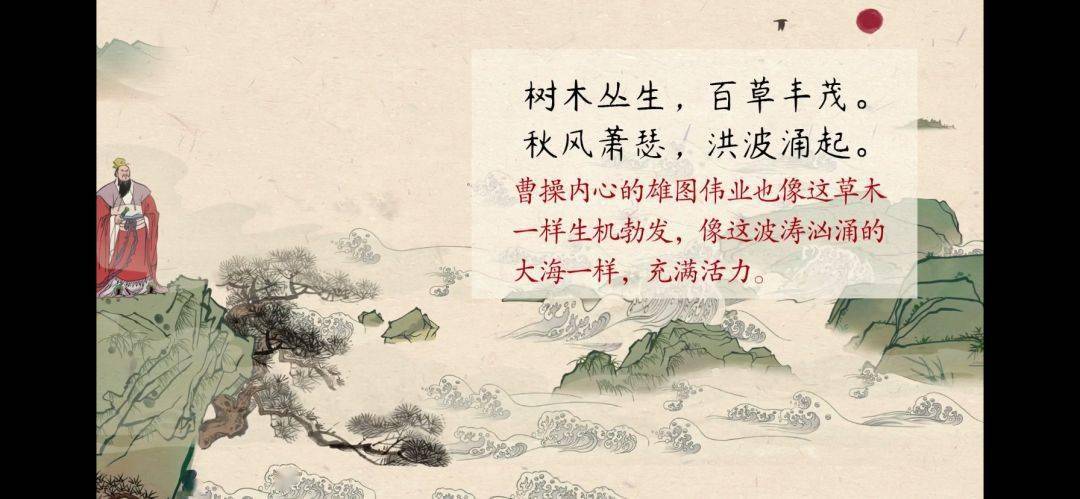 树木丛生，百草丰茂。
秋风萧瑟，洪波涌起。
曹操内心的雄图伟业也像这草木
一样生机勃发，像这波涛汹涌的
大海一样，充满活力。